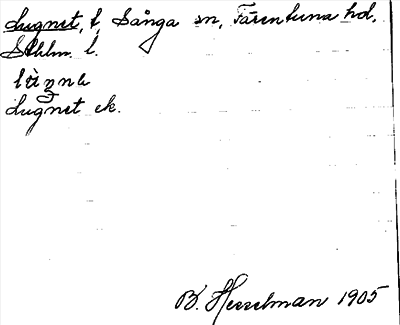 Lugnet, t, Sånga sn, Färentuna hd,
Sthlm. l.
Lugnet ek.
B. Hesselman 1905